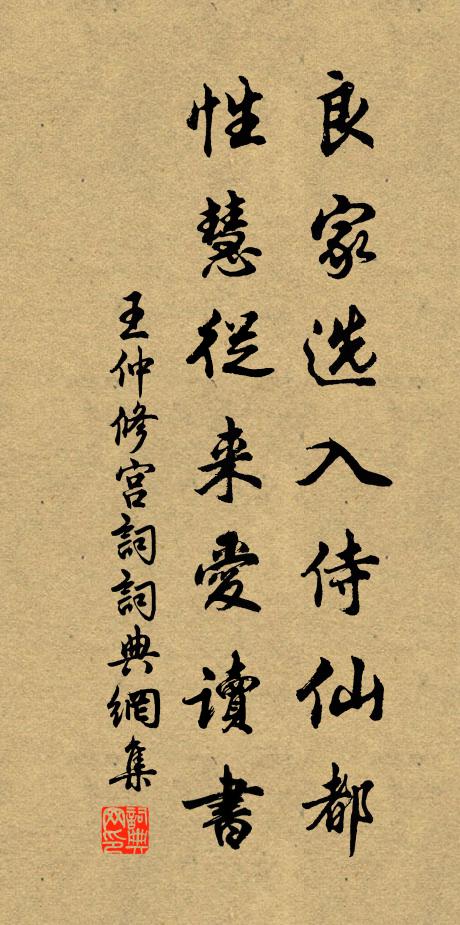 良家选入侍仙都
性慧從来愛讀書
王仲修宫詞詞典網集
詞典网印